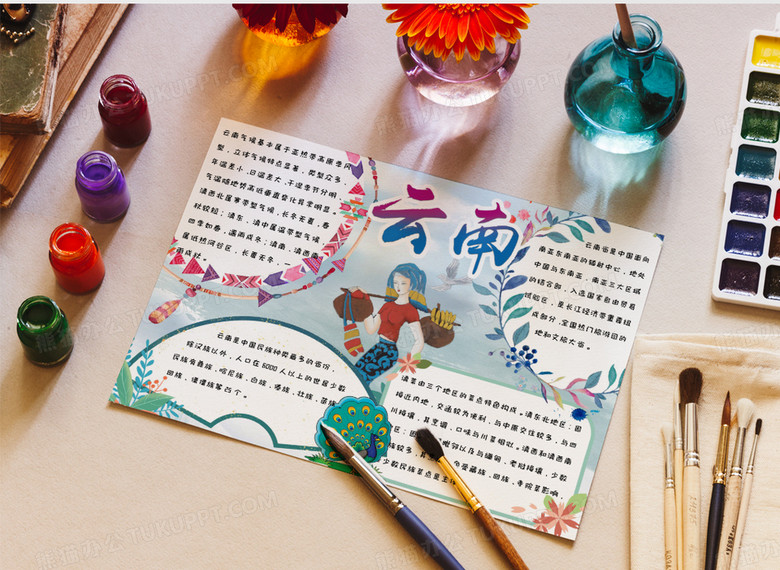 云南
云南气候基本属于亚热带高原季风
型，立体气候特点显著，类型众多
年温差小、日温差大、干湿季节分明
气温随地势高低垂直变化异常明显。
滇西北属寒带型气候，长冬无夏，春
秋较短；滇东、滇中属温带型气候
四季如春，遇雨成冬；滇南、滇西南
属低热河谷区，长夏无冬，一
雨成秋。
云南省是中国面向
南亚东南亚的辐射中心，地处
中国与东南亚、南亚三大区域
的结合部，入选国家自由贸易
试验区，是长江经济带重要组
成部分，全国热门旅游目的
地和文旅大省。
云南是中国民族种类最多的省份，
除汉族以外，人口在6000人以上的世居少数
民族有彝族、哈尼族、白族、傣族、壮族、苗族
回族、傈僳族等25个。
滇菜由三个地区的菜点特色构成。滇东北地区：因
接近内地，交通较为便利，与中原交往较多，与四
川接壤，其烹调、口味与川菜相似。滇西和滇西南
地区：因 毗邻以及与缅甸、老挝接壤，少数
族较多，其 受藏族、回族、寺院菜影响，
少数民族菜点是主